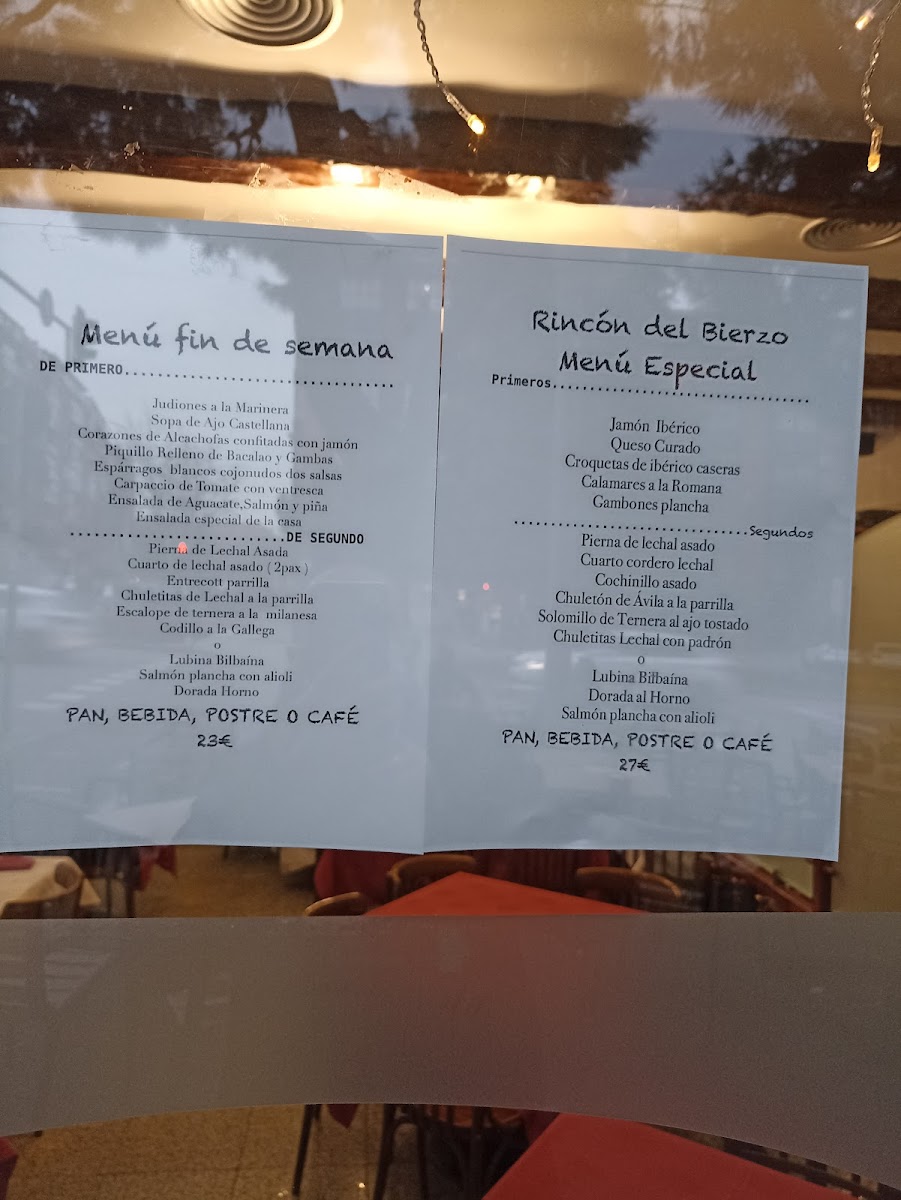 Menú fin de semana
DE PRIMERO.................................
Judiones a la Marinera
Sopa de Ajo Castellana
Corazones de Alcachofas confitadas con jamón
Piquillo Relleno de Bacalao y Gambas
Espárragos blancos cojonudos dos salsas
Carpaccio de Tomate con ventresca
Ensalada de Aguacate,Salmón y piña
Ensalada especial de la casa
...........................DE SEGUNDO
Pierna de Lechal Asada
Cuarto de lechal asado ( 2pax )
Entrecott parrilla
Chuletitas de Lechal a la parrilla
Escalope de ternera a la milanesa
Codillo a la Gallega
o
Lubina Bilbaína
Salmón plancha con alioli
Dorada Horno
PAN, BEBIDA, POSTRE O CAFÉ
23€
Rincón del Bierzo
Menú Especial
Primeros................................
Jamón Ibérico
Queso Curado
Croquetas de ibérico caseras
Calamares a la Romana
Gambones plancha
.............................Segundos
Pierna de lechal asado
Cuarto cordero lechal
Cochinillo asado
Chuletón de Ávila a la parrilla
Solomillo de Ternera al ajo tostado
Chuletitas Lechal con padrón
o
Lubina Bilbaína
Dorada al Horno
Salmón plancha con alioli
PAN, BEBIDA, POSTRE O CAFÉ
27€